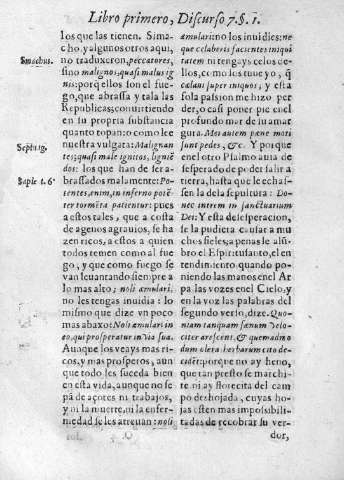 Libro primero, Discurso 7. §. 1.
los que las tienen. Sima-
cho, y algunos otros aqui,
no traduxeron, peccatores,
sino malignos; quasi malus ig
nis: porq̃ ellos son el fue-
go, que abrasa y tala las
Republicas; conuirtiendo
en su propria substancia
quanto topan: o como lee
nuestra vulgata: Malignan
tes; quasi male ignitos, lignie
dos: los que han de ser a-
brassados malamente: Po-
tentes, enim, in inferno potẽ
ter tormẽta patientur: pues
a estos tales, que a costa
de agenos agrauios, se ha
zen ricos, a estos a quien
todos temen como al fue
go, y que como fuego se
van leuantando siempre a
lo mas alto; noli æmulari,
no les tengas inuidia: lo
mismo que dize vn poco
mas abaxo: Noli æmulari in
eo, qui prosperatur in via sua.
Aunque los veays mas ri-
cos, y mas prosperos, aun
que todo les suceda bien
en esta vida, aunque no se
pã de açotes ni trabajos,
y ni la muerte, ni la enfer-
miedad se les atreuan: noli
Simachus.
Septu ig.
Sapiẽ t. 6.
æmulari: no los inuidies; ne
que celaberis facientes iniqui
tatem ni tengays celos de-
llos, como los tuue yo, q̃
celaui super iniquos, y esta
sola passion me hizo per
der, o casi poner pie en el
profundo mar de su amar
gura. Mei autem pene moti
sunt pedes, &c. Y porque
en el otro Psalmo auia de
sesperado de poder salir a
tierra, hasta que le echas-
sen la de la sepultura: Do-
nec intrem in sanctuarium
Dei: Y esta desesperacion,
se la pudiera causar a mu
chos fieles; a penas le alũ-
bro el Espiritu santo, el en
tendimiento quando po-
niendo las manos en el Ar
pa las vozes en el Cielo, y
en la voz las palabras del
segundo verso, dize. Quo-
niam tanquam fænum velo-
citer arescent, & quemadmo
dum olera herbarum cito de-
cidẽt: porque no ay heno,
que tan presto se marchi-
te ni ay florecita del cam
po deshojada, cuyas ho-
jas esten mas impossibili-
tadas de recobrar su ver-
dor,